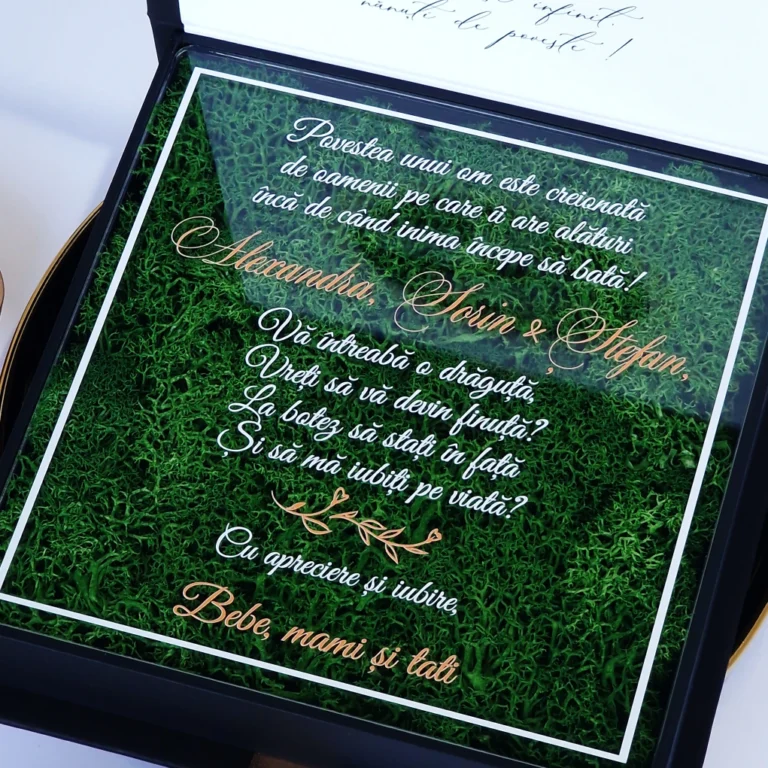 infinit.
nănuți de poveste!
Povestea unui om este creionată
de oamenii pe care îi are alături
încă de când inima începe să bată!
Alexandra, Sorin & Ștefan,
Vă întreabă o drăguță,
Vreți să vă devin finuță?
La botez să stați în față
Și să mă iubiți pe viață?
Cu apreciere și iubire,
Bebe, mami și tati